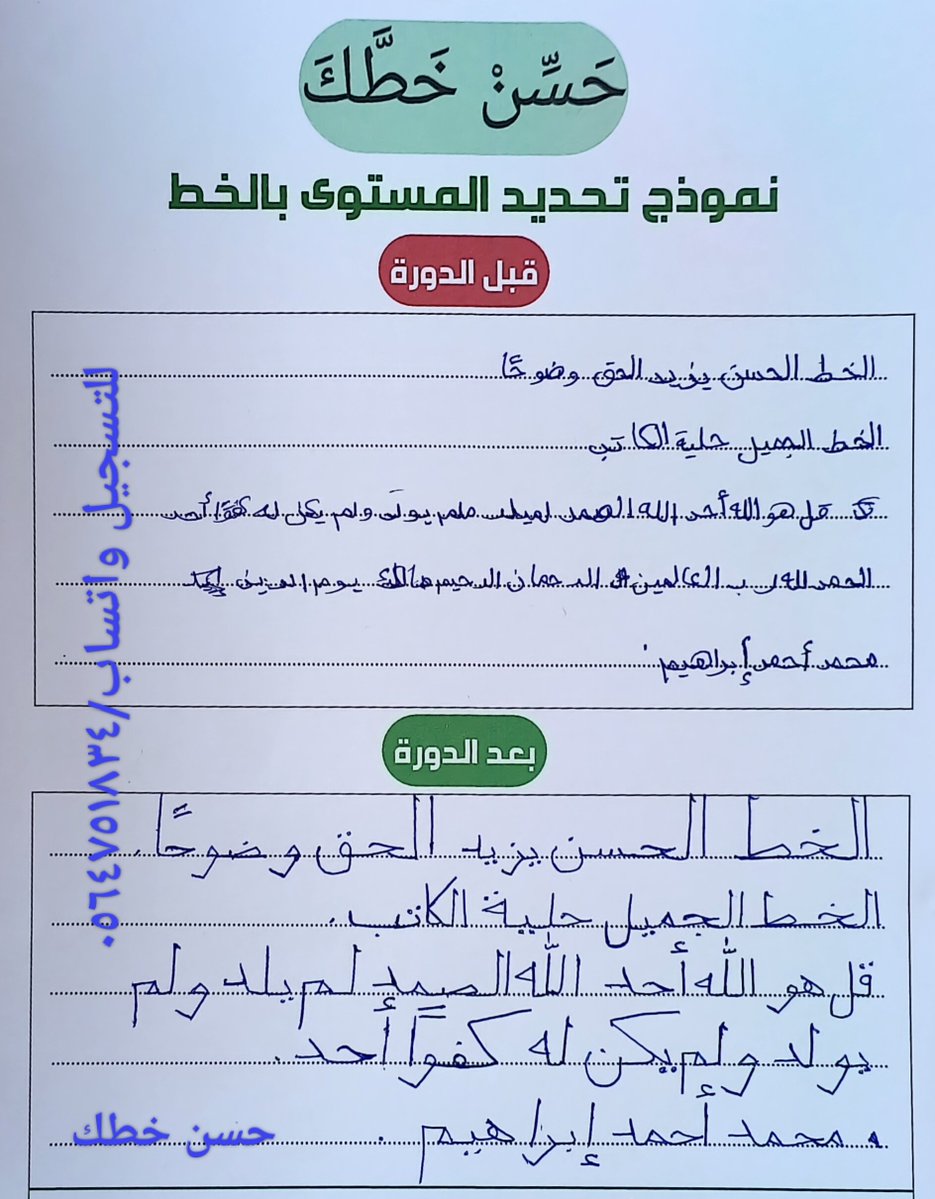 حَسِّنْ خَطَّكَ
نموذج تحديد المستوى بالخط
قبل الدورة
الخط الحسن يزيد الحق وضوحًا
الخط الجميل حلية الكاتب
قل هو الله أحد الله الصمد ولم يكن له كفوًا أحد
الحمد لله رب العالمين الرحمان الرحيم مالك يوم الدين
محمد أحمد إبراهيم
بعد الدورة
الخط الحسن يزيد الحق وضوحًا.
الخط الجميل حلية الكاتب.
قل هو اللّٰه أحد اللّٰه الصمد لم يلد ولم
يولد ولم يكن له كفوًا أحد.
محمد أحمد إبراهيم.
حسن خطك
للتسجيل واتساب/٠٥٦٤٧٥١٨٣٤